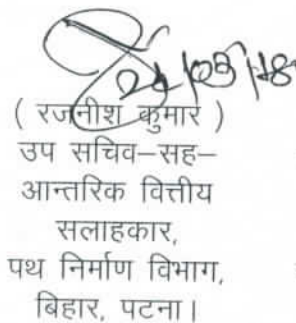 24/05/18
( रजनीश कुमार )
उप सचिव–सह–
आन्तरिक वित्तीय
सलाहकार,
पथ निर्माण विभाग,
बिहार, पटना।